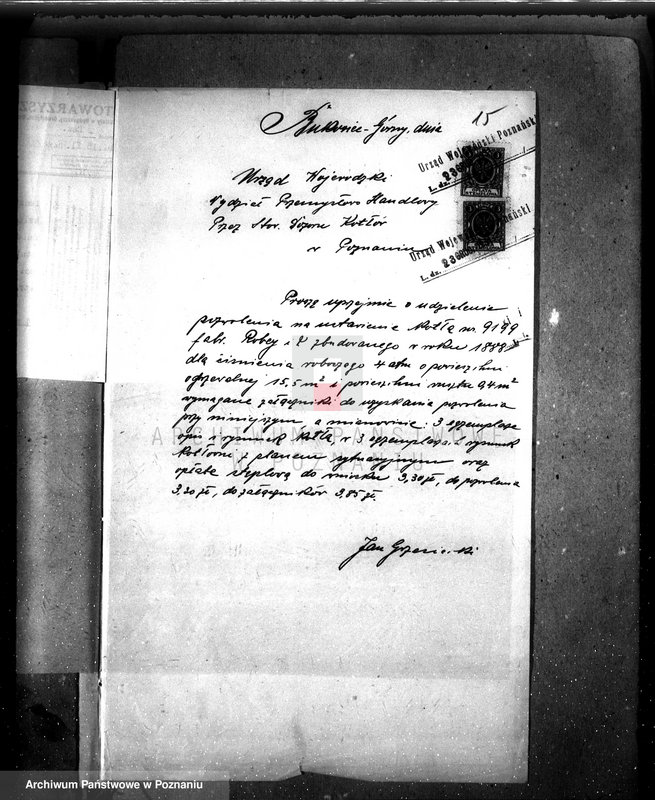 15
Bukowiec-Górny, dnia
Urząd Wojewódzki Poznański
L. dz.
Urząd Wojewódzki
Wydział Przemysłowo Handlowy
Przez Stow. Dozoru Kotłów
w Poznaniu
Urząd Wojew
L. dz.
Proszę uprzejmie o udzielenie
pozwolenia na ustawienie kotła nr. 9149
fabr. Robey i zbudowanego w roku 1889
dla ciśnienia roboczego 4 atm o powierzchni
ogrzewalnej 15,5 m² i powierzchni rusztu
wymagane załączniki do uzyskania pozwolenia
przy niniejszym a mianowicie: 3 egzemplarze
opis i rysunek kotła, w 3 egzemplarzach rysunek
kotłowni z planem sytuacyjnym oraz
opłatę stemplową do wniosku 3,30 zł, do pozwolenia
3,30 zł, do załączników 3,85 zł.
Jan
TOWARZYSZ
ARCHIWUM PAŃSTWOWE
W POZNANIU
Archiwum Państwowe w Poznaniu